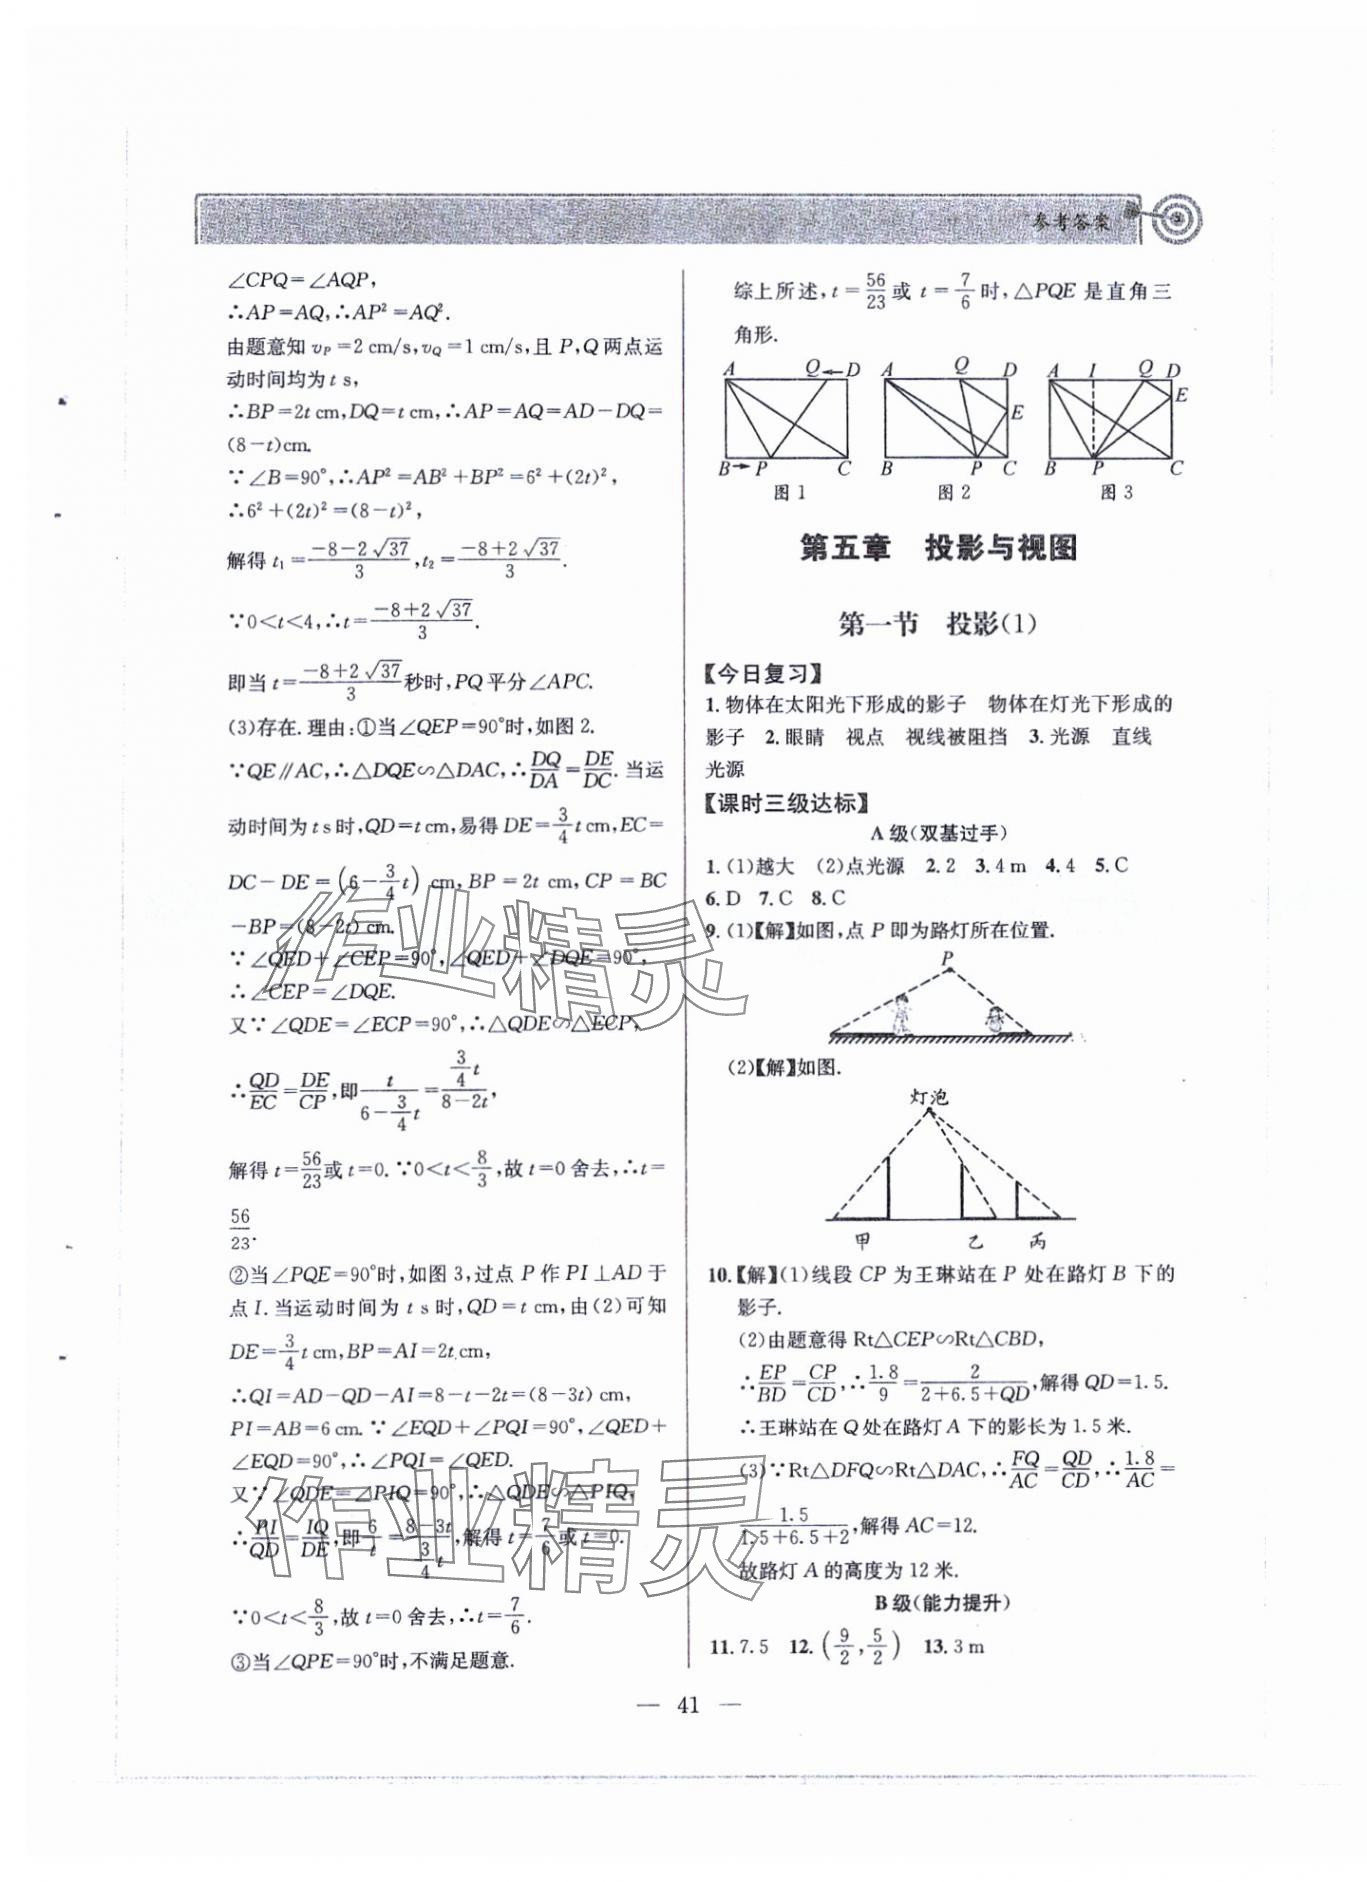 参考答案
∠CPQ=∠AQP,
∴AP=AQ,∴AP²=AQ².
由题意知 vP=2 cm/s,vQ=1 cm/s,且 P,Q 两点运
动时间均为 t s,
∴BP=2t cm,DQ=t cm,∴AP=AQ=AD-DQ=
(8-t)cm.
∵∠B=90°,∴AP²=AB²+BP²=6²+(2t)²,
∴6²+(2t)²=(8-t)²,
解得 t₁=(-8-2√37)/3,t₂=(-8+2√37)/3.
∵0<t<4,∴t=(-8+2√37)/3.
即当 t=(-8+2√37)/3 秒时,PQ 平分∠APC.
(3)存在.理由:①当∠QEP=90°时,如图 2.
∵QE∥AC,∴△DQE∽△DAC,∴DQ/DA=DE/DC.当运
动时间为 t s 时,QD=t cm,易得 DE=3/4 t cm,EC=
DC-DE=(6-3/4 t) cm,BP=2t cm,CP=BC
-BP=(8-2t) cm.
∵∠QED+∠CEP=90°,∠QED+∠DQE=90°,
∴∠CEP=∠DQE.
又∵∠QDE=∠ECP=90°,∴△QDE∽△ECP,
∴QD/EC=DE/CP,即 t/(6-3/4 t)=(3/4 t)/(8-2t),
解得 t=56/23 或 t=0.∵0<t<8/3,故 t=0 舍去,∴t=
56/23.
②当∠PQE=90°时,如图 3,过点 P 作 PI⊥AD 于
点 I.当运动时间为 t s 时,QD=t cm,由(2)可知
DE=3/4 t cm,BP=AI=2t cm,
∴QI=AD-QD-AI=8-t-2t=(8-3t) cm,
PI=AB=6 cm.∵∠EQD+∠PQI=90°,∠QED+
∠EQD=90°,∴∠PQI=∠QED.
又∵∠QDE=∠PIQ=90°,∴△QDE∽△PIQ,
∴PI/QD=IQ/DE,即 6/t=(8-3t)/(3/4 t),解得 t=7/6 或 t=0.
∵0<t<8/3,故 t=0 舍去,∴t=7/6.
③当∠QPE=90°时,不满足题意.
综上所述,t=56/23 或 t=7/6 时,△PQE 是直角三
角形.
A Q←D A Q D A I Q D
E E
B→P C B P C B P C
图 1 图 2 图 3
第五章 投影与视图
第一节 投影(1)
【今日复习】
1.物体在太阳光下形成的影子 物体在灯光下形成的
影子 2.眼睛 视点 视线被阻挡 3.光源 直线
光源
【课时三级达标】
A 级(双基过手)
1.(1)越大 (2)点光源 2.2 3.4 m 4.4 5.C
6.D 7.C 8.C
9.(1)【解】如图,点 P 即为路灯所在位置.
P
(2)【解】如图.
灯泡
甲 乙 丙
10.【解】(1)线段 CP 为王琳站在 P 处在路灯 B 下的
影子.
(2)由题意得 Rt△CEP∽Rt△CBD,
∴EP/BD=CP/CD,∴1.8/9=2/(2+6.5+QD),解得 QD=1.5.
∴王琳站在 Q 处在路灯 A 下的影长为 1.5 米.
(3)∵Rt△DFQ∽Rt△DAC,∴FQ/AC=QD/CD,∴1.8/AC=
1.5/(1.5+6.5+2),解得 AC=12.
故路灯 A 的高度为 12 米.
B 级(能力提升)
11.7.5 12.(9/2,5/2) 13.3 m
— 41 —
作业精灵
作业精灵